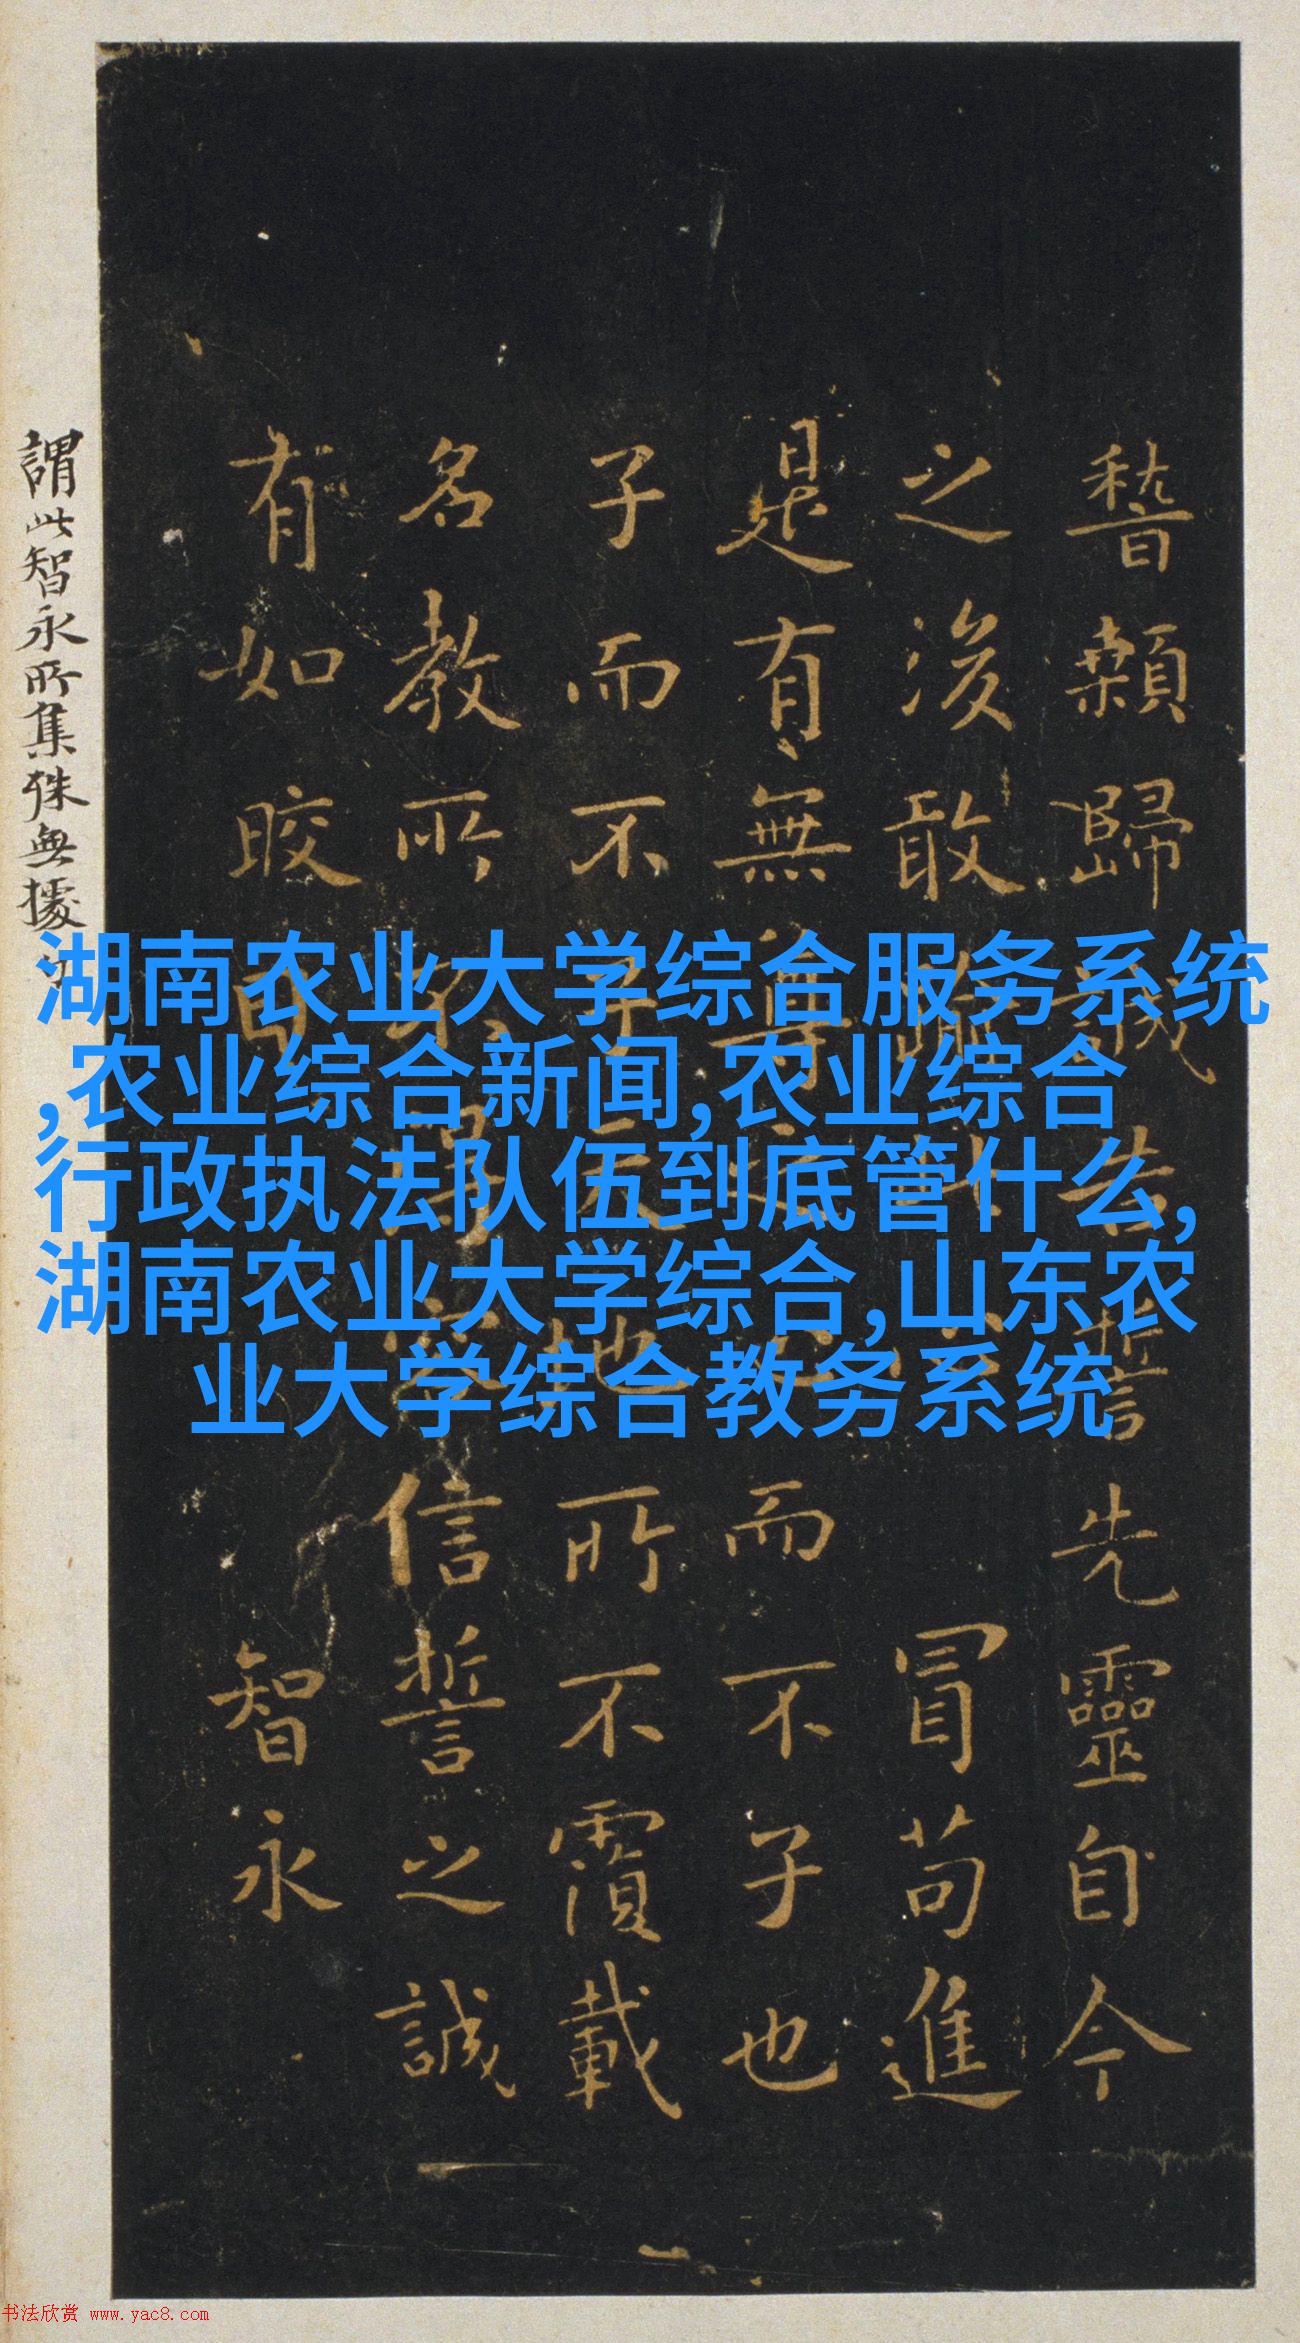 稽顙歸誠告誓先靈自今
之後敢冒苟進
是有無尊而不子也
子而不子天地所不覆載
名教所不得容信誓之誠
有如皎日智永
謂此智永所集殊無據
湖南农业大学综合服务系统
,农业综合新闻,农业综合
行政执法队伍到底管什么,
湖南农业大学综合,山东农
业大学综合教务系统
书法欣赏 www.yac8.com